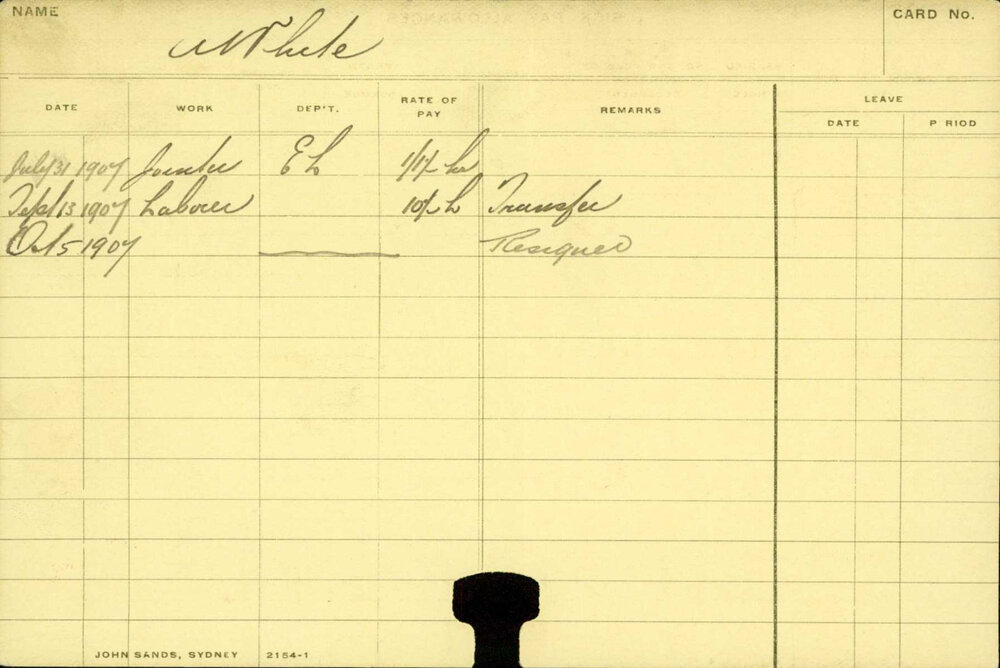 NAME
White
CARD No.
DATE WORK DEP'T. RATE OF PAY REMARKS LEAVE
DATE P RIOD
July 31 1907 Jointer E L 1/1½ hr
Sept 13 1907 Laborer h Transfer
Oct 5 1907 Resigned
JOHN SANDS, SYDNEY 2154-1